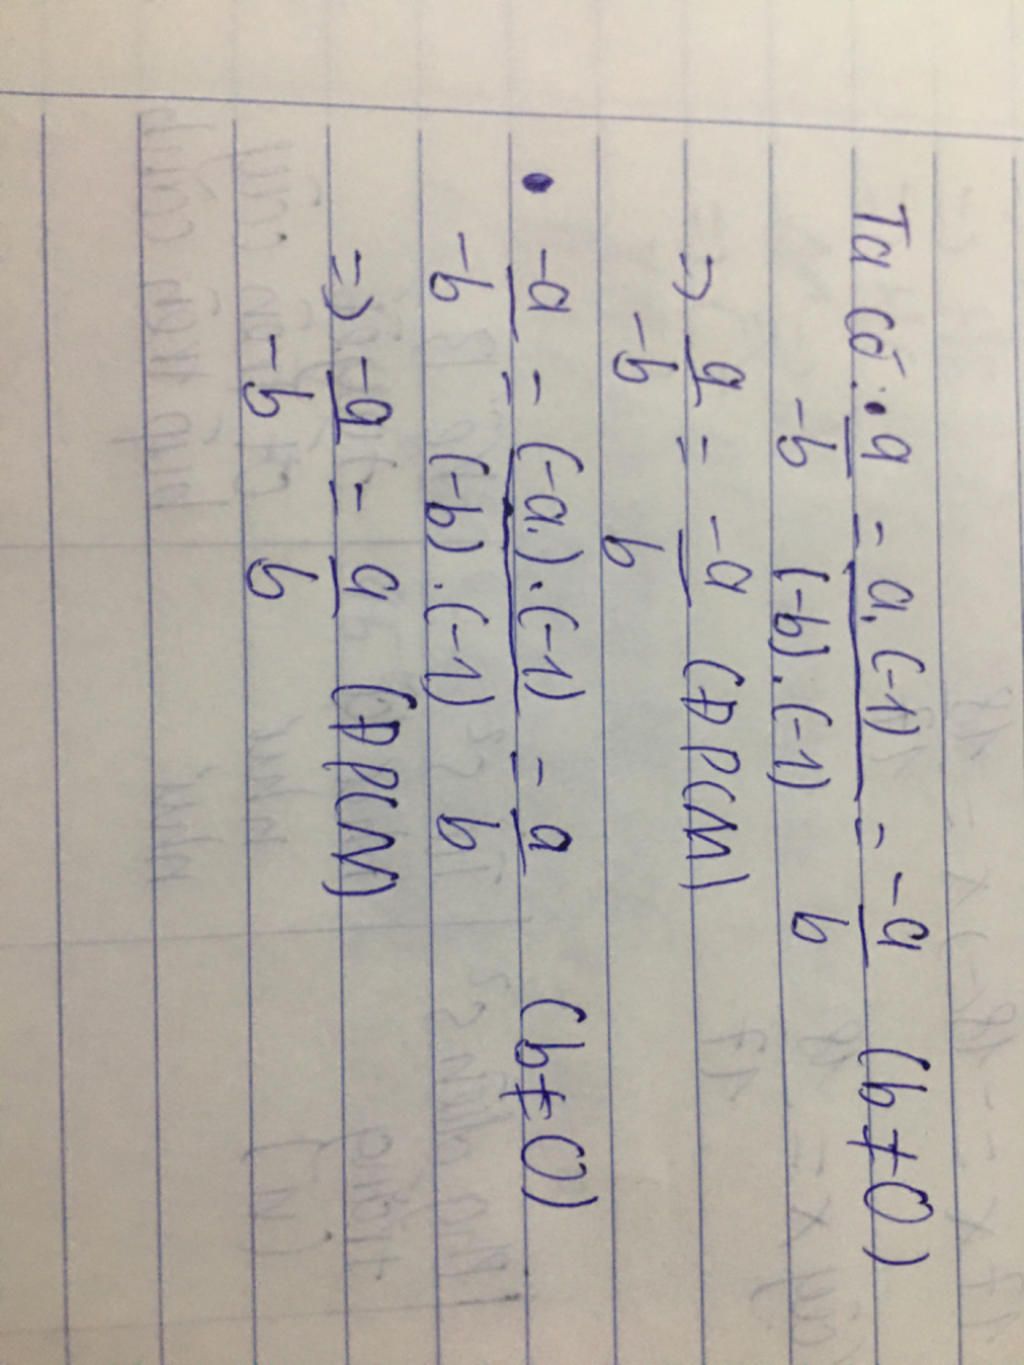 Ta có: • a/-b = a.(-1)/(-b).(-1) = -a/b (b≠0)
=> a/-b = -a/b (ĐPCM)
• -a/-b = (-a).(-1)/(-b).(-1) = a/b (b≠0)
=> -a/-b = a/b (ĐPCM)